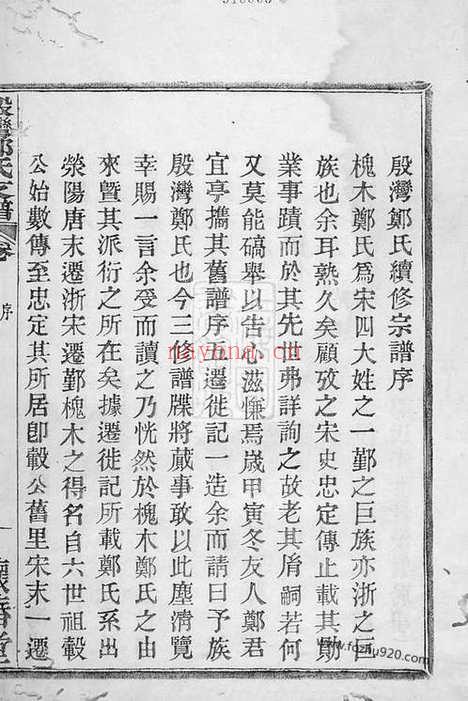 殷灣鄭氏續修宗譜序
槐木鄭氏爲宋四大姓之一鄞之巨族亦浙之巨
族也余耳熟久矣顧攷之宋史忠定傳止載其勛
業事蹟而於其先世弗詳詢之故老其裔嗣若何
又莫能碻舉以告心滋慊焉歲甲寅冬友人鄭君
宜亭攜其舊譜序五遷徙記一造余而請曰予族
殷灣鄭氏也今三修譜牒將蕆事敢以此塵清覽
幸賜一言余受而讀之乃恍然於槐木鄭氏之由
來暨其派衍之所在矣據遷徙記所載鄭氏系出
滎陽唐末遷浙宋遷鄞槐木之得名自六世祖轂
公始數傳至忠定其所居卽轂公舊里宋末一遷
殷灣鄭氏支譜
卷
序
一
nayona.cn
www.fozhu920.com